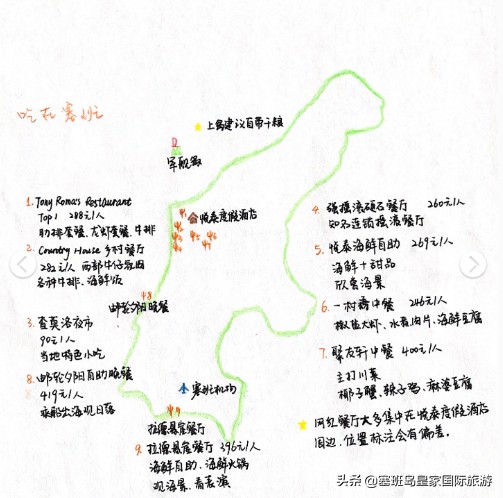 吃在塞班
★ 上岛建议自带干粮
军舰岛
悦泰度假酒店
1. Tony Roma's Restaurant
Top1 288元/人
肋排套餐、龙虾套餐、牛排
2. Country House 乡村餐厅
282元/人 西部牛仔氛围
各种牛排、海鲜饭
3. 查莫洛夜市
90元/人
当地特色小吃
8. 邮轮夕阳自助晚餐
419元/人
乘船出海观日落
邮轮夕阳晚餐
塞班机场
悬崖餐厅
9. 悬崖餐厅 396元/人
海鲜自助、海鲜火锅
观海景、看表演
4. 摇滚硕石餐厅 260元/人
知名连锁摇滚餐厅
5. 悦泰海鲜自助 269元/人
海鲜+甜品
欣赏海景
6. 一树 中餐 246元/人
椒盐大虾、水煮肉片、海鲜豆腐
7. 聚友轩中餐 400元/人
主打川菜
椰子蟹、辣子鸡、麻婆豆腐
★ 网红餐厅大多集中在悦泰度假酒店
周边,位置标注会有偏差。
头条 @塞班岛皇家国际旅游